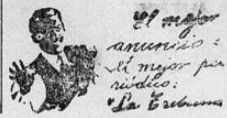 El mejor
anuncio:
El mejor pe
riódico:
"La Tribuna